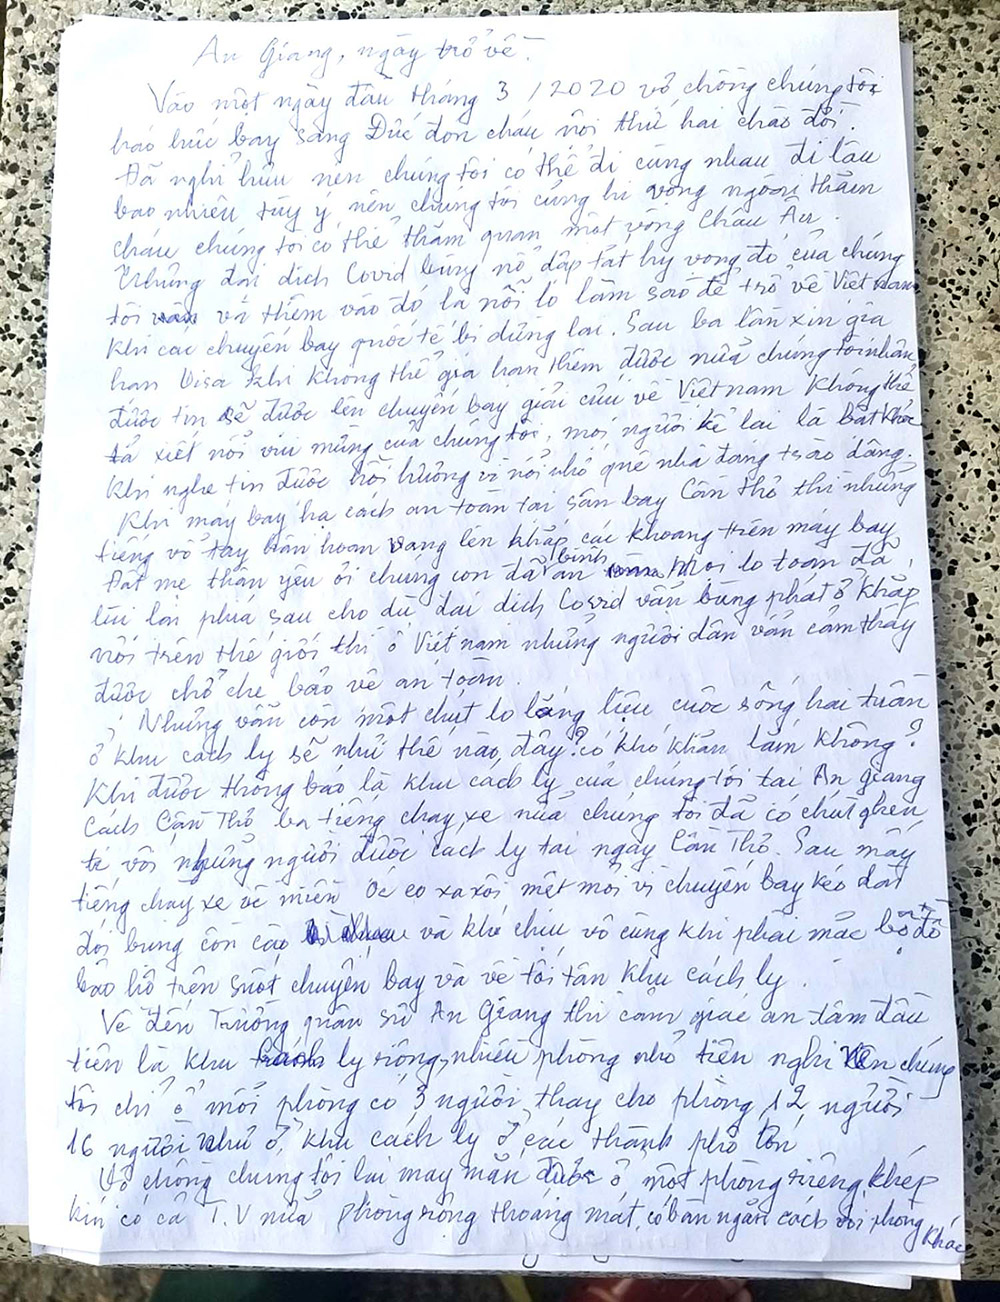 An Giang, ngày trở về.
Vào một ngày đầu tháng 3 / 2020 vợ chồng chúng tôi
háo hức bay sang Đức đón cháu nội thứ hai chào đời.
Đã nghỉ hưu nên chúng tôi có thể đi cùng nhau đi lâu
bao nhiêu tùy ý, nên chúng tôi cũng hi vọng ngoài thăm
cháu chúng tôi có thể thăm quan một vòng Châu Âu.
Nhưng đại dịch Covid bùng nổ dập tắt hy vọng đó của chúng
tôi và thêm vào đó là nỗi lo làm sao để trở về Việt Nam
khi các chuyến bay quốc tế bị dừng lại. Sau ba lần xin gia
hạn Visa khi không thể gia hạn thêm được nữa chúng tôi nhận
được tin sẽ được lên chuyến bay giải cứu về Việt nam không thể
tả xiết nỗi vui mừng của chúng tôi, mọi người kể lại là bật khóc
khi nghe tin được hồi hương vì nỗi nhớ quê nhà đang trào dâng.
Khi máy bay hạ cánh an toàn tại sân bay Cần Thơ thì những
tiếng vỗ tay hân hoan vang lên khắp các khoang trên máy bay
Đất mẹ thân yêu ơi chúng con đã bình an Mọi lo toan đã
lùi lại phía sau cho dù đại dịch Covid vẫn bùng phát ở khắp
nơi trên thế giới thì ở Việt nam những người dân vẫn cảm thấy
được chở che bảo vệ an toàn
Nhưng vẫn còn một chút lo lắng liệu cuộc sống hai tuần
ở khu cách ly sẽ như thế nào đây? có khó khăn lắm không?
Khi được thông báo là khu cách ly của chúng tôi tại An Giang
cách Cần Thơ ba tiếng chạy xe nữa chúng tôi đã có chút ghen
tị với những người được cách ly tại ngay Cần Thơ. Sau mấy
tiếng chạy xe về miền Óc eo xa xôi mệt mỏi vì chuyến bay kéo dài
đói bụng cồn cào và khó chịu vô cùng khi phải mặc bộ đồ
bảo hộ trên suốt chuyến bay và về tới tận khu cách ly.
Về đến Trường quân sự An Giang thì cảm giác an tâm đầu
tiên là khu cách ly rộng, nhiều phòng nhỏ tiện nghi nên chúng
tôi chỉ ở mỗi phòng có 3 người thay cho phòng 12 người
16 người như ở khu cách ly ở các thành phố lớn
Vợ chồng chúng tôi lại may mắn được ở một phòng riêng, khép
kín có cả T.V nữa phòng rộng thoáng mát, có bàn ngăn cách với phòng khác